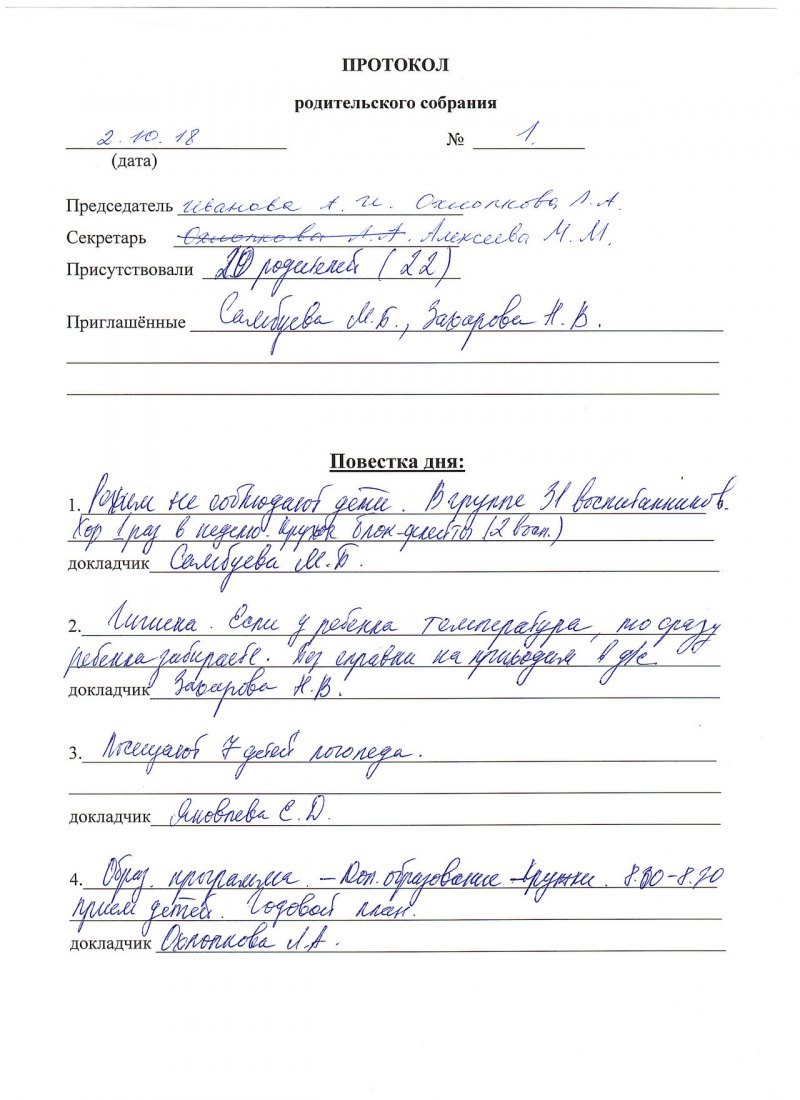 ПРОТОКОЛ
родительского собрания
2.10.18 № 1.
(дата)
Председатель Иванова А. И. Охлопкова Л.А.
Секретарь Охлопкова Л.А. Алексеева М.М.
Присутствовали родителей (22)
Приглашённые Самбуева М.Б., Захарова Н.В.
Повестка дня:
1. Режим не соблюдают дети. В группе 31 воспитанников.
Хор 1 раз в неделю. Кружок блок-флейты (2 восп.)
докладчик Самбуева М.Б.
2. Гигиена. Если у ребенка температура, то сразу
ребенка забираете. Без справки не приводим в д/с
докладчик Захарова Н.В.
3. Посещают 7 детей логопеда.
докладчик Яковлева С.Д.
4. Образ. программа. – Доп. образование кружки. 8.00-8.20
прием детей. Годовой план.
докладчик Охлопкова Л.А.